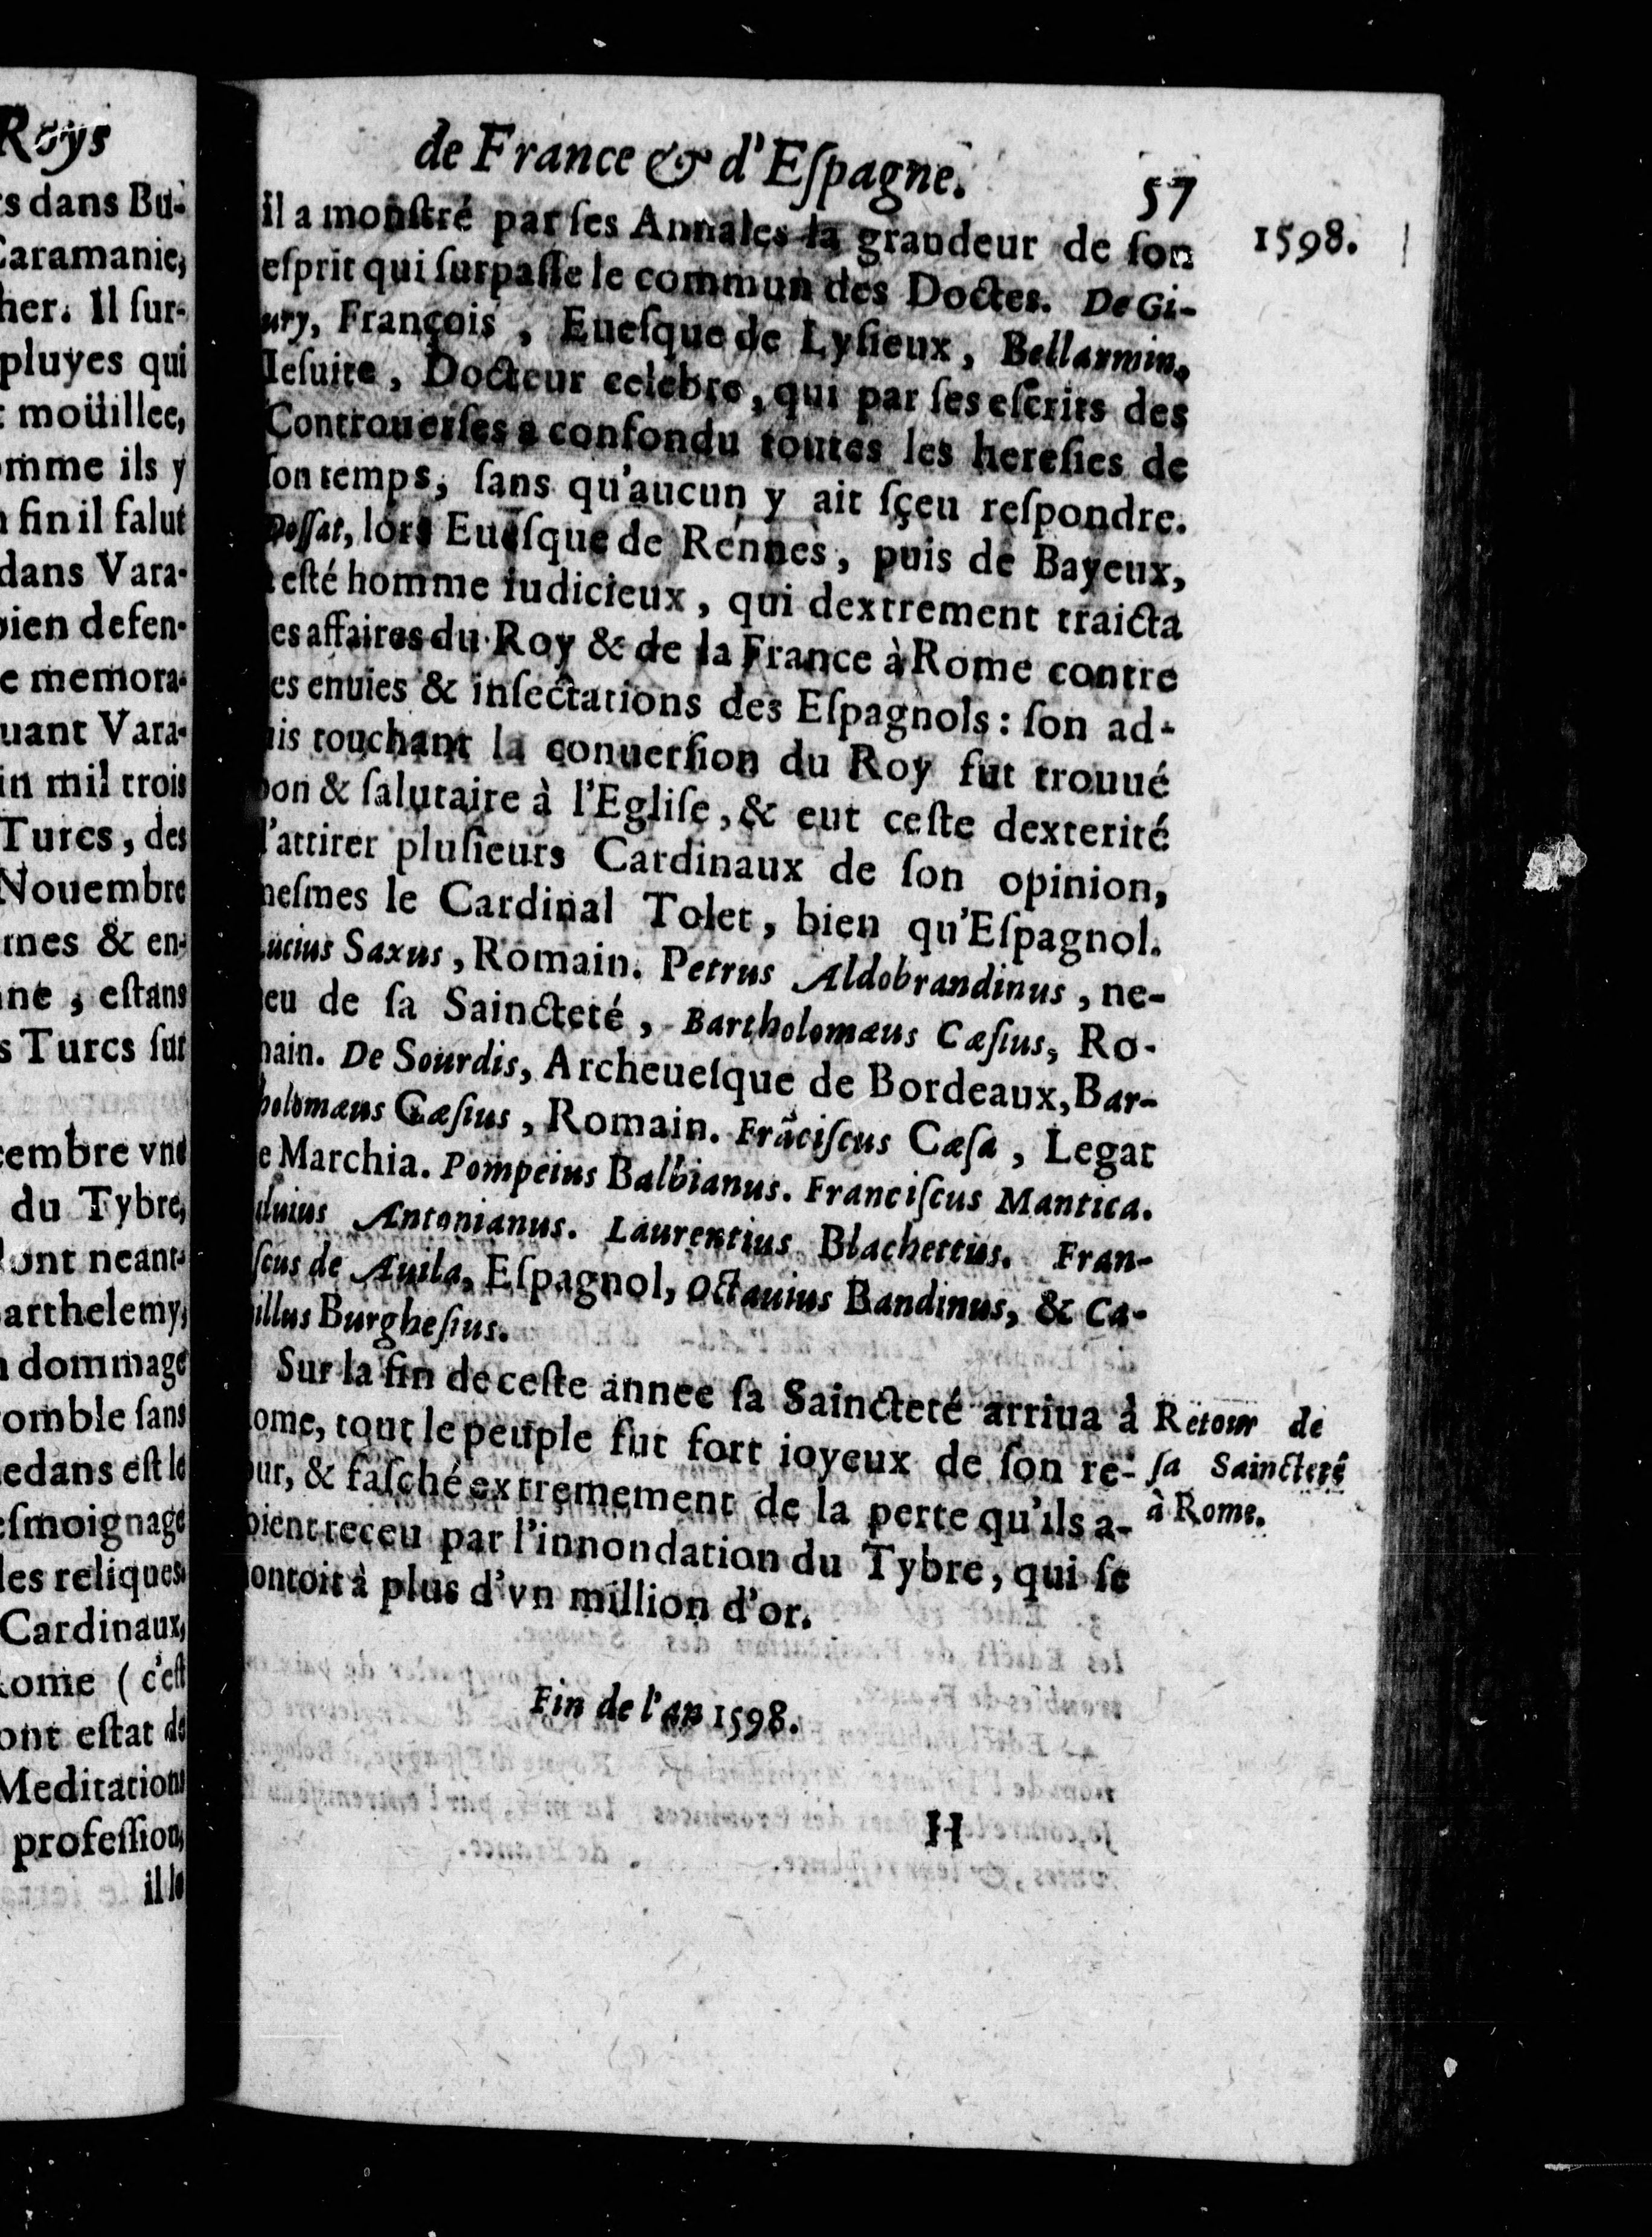 Roys
s dans Bu-
Caramanie,
her. Il ſur-
pluyes qui
moüillee,
omme ils y
fin il falut
dans Vara-
bien defen-
e memora-
uant Vara-
in mil trois
Turcs, des
Nouembre
mes & en-
ne, eſtans
s Turcs ſur
cembre vne
du Tybre,
ont neant-
arthelemy,
dommage
omble ſans
edans eſt le
eſmoignage
les reliques
Cardinaux,
Rome ( c'eſt
ont eſtat de
Meditations
profeſſion,
il le
de France & d'Eſpagne. 57
1598.
il a monſtré par ſes Annales la grandeur de ſon
eſprit qui ſurpaſſe le commun des Doctes. De Gi-
ury, François, Eueſque de Lyſieux, Bellarmin,
Ieſuite, Docteur celebre, qui par ſes eſcrits des
Controuerſes a confondu toutes les hereſies de
ſon temps, ſans qu'aucun y ait ſçeu reſpondre.
Doſſat, lors Eueſque de Rennes, puis de Bayeux,
eſté homme iudicieux, qui dextrement traicta
es affaires du Roy & de la France à Rome contre
es enuies & inſectations des Eſpagnols: ſon ad-
uis touchant la conuerſion du Roy fut trouué
bon & ſalutaire à l'Egliſe, & eut ceſte dexterité
d'attirer pluſieurs Cardinaux de ſon opinion,
meſmes le Cardinal Tolet, bien qu'Eſpagnol.
Lucius Saxus, Romain. Petrus Aldobrandinus, ne-
ueu de ſa Saincteté, Bartholomæus Cæſius, Ro-
main. De Sourdis, Archeueſque de Bordeaux, Bar-
holomæus Cæſius, Romain. Frãciſcus Cæſa, Legat
e Marchia. Pompeius Balbianus. Franciſcus Mantica.
iluius Antonianus. Laurentius Blachettus. Fran-
ſcus de Auila, Eſpagnol, Octauius Bandinus, & Ca-
illus Burgheſius.
Sur la fin de ceſte annee ſa Saincteté arriua à
ome, tout le peuple fut fort ioyeux de ſon re-
our, & faſché extremement de la perte qu'ils a-
oient receu par l'innondation du Tybre, qui ſe
ontoit à plus d'vn million d'or.
Retour de
ſa Saincteté
à Rome.
Fin de l'an 1598.
H